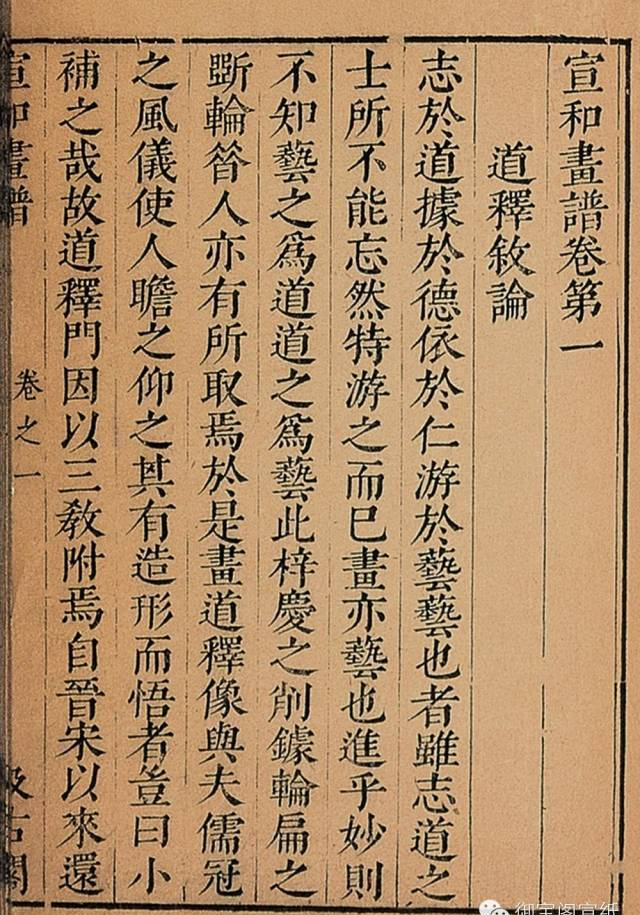 宣和畫譜卷第一
道釋敘論
志於道據於德依於仁游於藝藝也者雖志道之
士所不能忘然特游之而巳畫亦藝也進乎妙則
不知藝之為道道之為藝此梓慶之削鐻輪扁之
斲輪昝人亦有所取焉於是畫道釋像與夫儒冠
之風儀使人瞻之仰之其有造形而悟者豈曰小
補之哉故道釋門因以三教附焉自晉宋以來還
宣和畫譜
卷之一
汲古閣
御宝阁宣纸